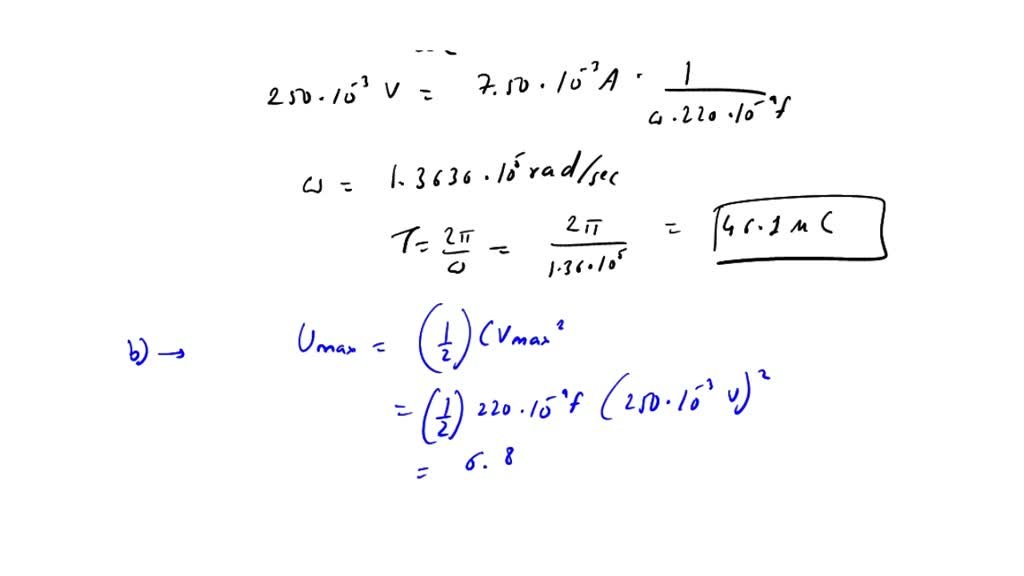 250·10⁻³ V = 7.50·10⁻³ A · 1 / ω·220·10⁻⁹f
ω = 1.3636·10⁵ rad/sec
T = 2π/ω = 2π / 1.36·10⁵ = 46.1 μ C
b) → Umax = (1/2) C Vmax²
= (1/2) 220·10⁻⁹f (250·10⁻³ V)²
= 6.8